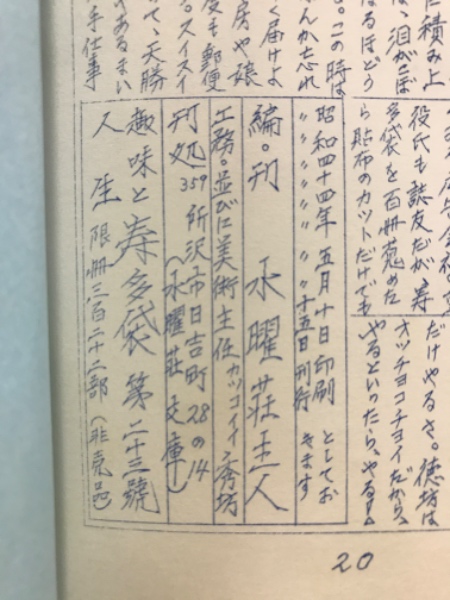 に積み上
、泪がこぼ
るほどう
。この時は
んか忘れ
く届けよ
房や娘
度も郵便
。スイスイ
て、天勝
あるまい
手仕事
役氏も誌友だが、寿
多袋を百冊蒐めた
ら貼布のカットだけでも
だけやるさ。徳坊は
オッチョコチョイだから、
やるといったら、やる!。
昭和四十四年 五月十日印刷 としてお
〃 〃 〃 〃 〃 〃 十五日刊行 きます
編。刊 水曜荘主人
工務。並びに美術主任 カッコイイ秀坊
刊処 359 所沢市日吉町 28の14
(水曜荘文庫)
趣味と 寿多袋 第二十三號
人生 限冊三百二十二部 (非売品)
20